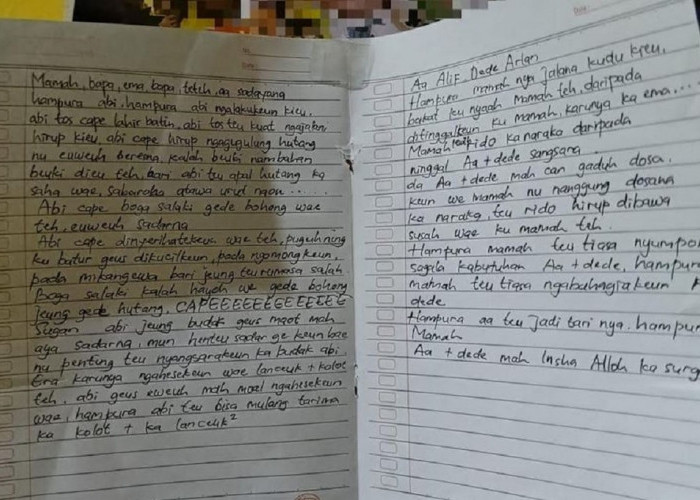 Mamah, bapa, ema, bapa, teteh, aa sadayana
hampura abi, hampura abi ngalakukeun kieu,
abi tos cape lahir batin, abi tos teu kuat ngajalani
hirup kieu, abi cape hirup ngagugulung hutang
nu euweuh berena, kalah beuki nambahan
beuki dieu teh, bari abi teu apal hutang ka
saha wae, sabaraha atawa urut naon......
Abi cape boga salaki gede bohong wae
teh, euweuh sadarna
Abi cape diperihatekeun wae teh, puguh ning
ku batur geus dikucilkeun, pada nyomongkeun,
pada mikangewa bari jeung teu rumasa salah.
Boga salaki kalah hayoh we gede bohong
jeung gede hutang. CAPEEEEEEEEEEEEEE
Sugan abi jeung budak geus maot mah
aya sadarna, mun henteu sadar ge keun bae
nu penting teu nyangsarakeun ka budak abi.
Era karunya ngahesekeun wae lanceuk + kolot
teh, abi geus euweuh mah moal ngahesekeun
wae, hampura abi teu bisa mulang tarima
ka kolot + ka lanceuk²
Aa Alif Dede Arlan
Hampura mamah nya jalana kudu kieu,
bakat ku nyaah mamah teh, daripada
ditinggalkeun ku mamah, karunya ka ema...
Mamah rido ka naraka daripada
ninggal Aa + dede sangsara.
da Aa + dede mah can gaduh dosa,
keun we mamah nu nanggung dosana
ka naraka, teu rido hirup dibawa
susah wae ku mamah teh.
Hampura mamah teu tiasa nyumpo
sagala kabutuhan Aa + dede, hampura
mamah teu tiasa ngabahagiakeun
dede
Hampura aa teu jadi tari nya. hampura
Mamah
Aa + dede mah Insha Alloh ka surg